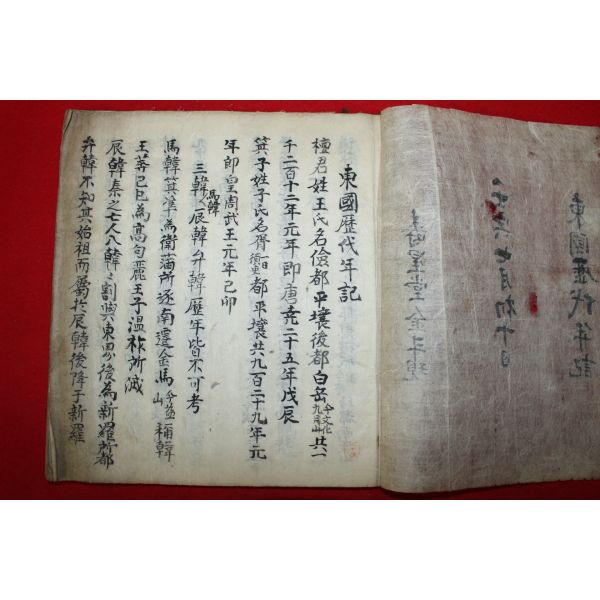 東國歷代年記
七月初十日
東國歷代年記
檀君姓王氏名儉都平壤後都白岳今文化九月山共一
千二百十二年元年即唐堯二十五年戊辰
箕子姓子氏名胥都平壤共九百二十九年元
年即皇周武王元年己卯
三韓馬韓辰韓弁韓歷年皆不可考
馬韓箕準為衛滿所逐南遷金馬今益山稱韓
王莽己巳為高句麗王子溫祚所滅
辰韓秦之亡人入韓〻割與東界後為新羅所都
弁韓不知其始祖而屬於辰韓後降于新羅